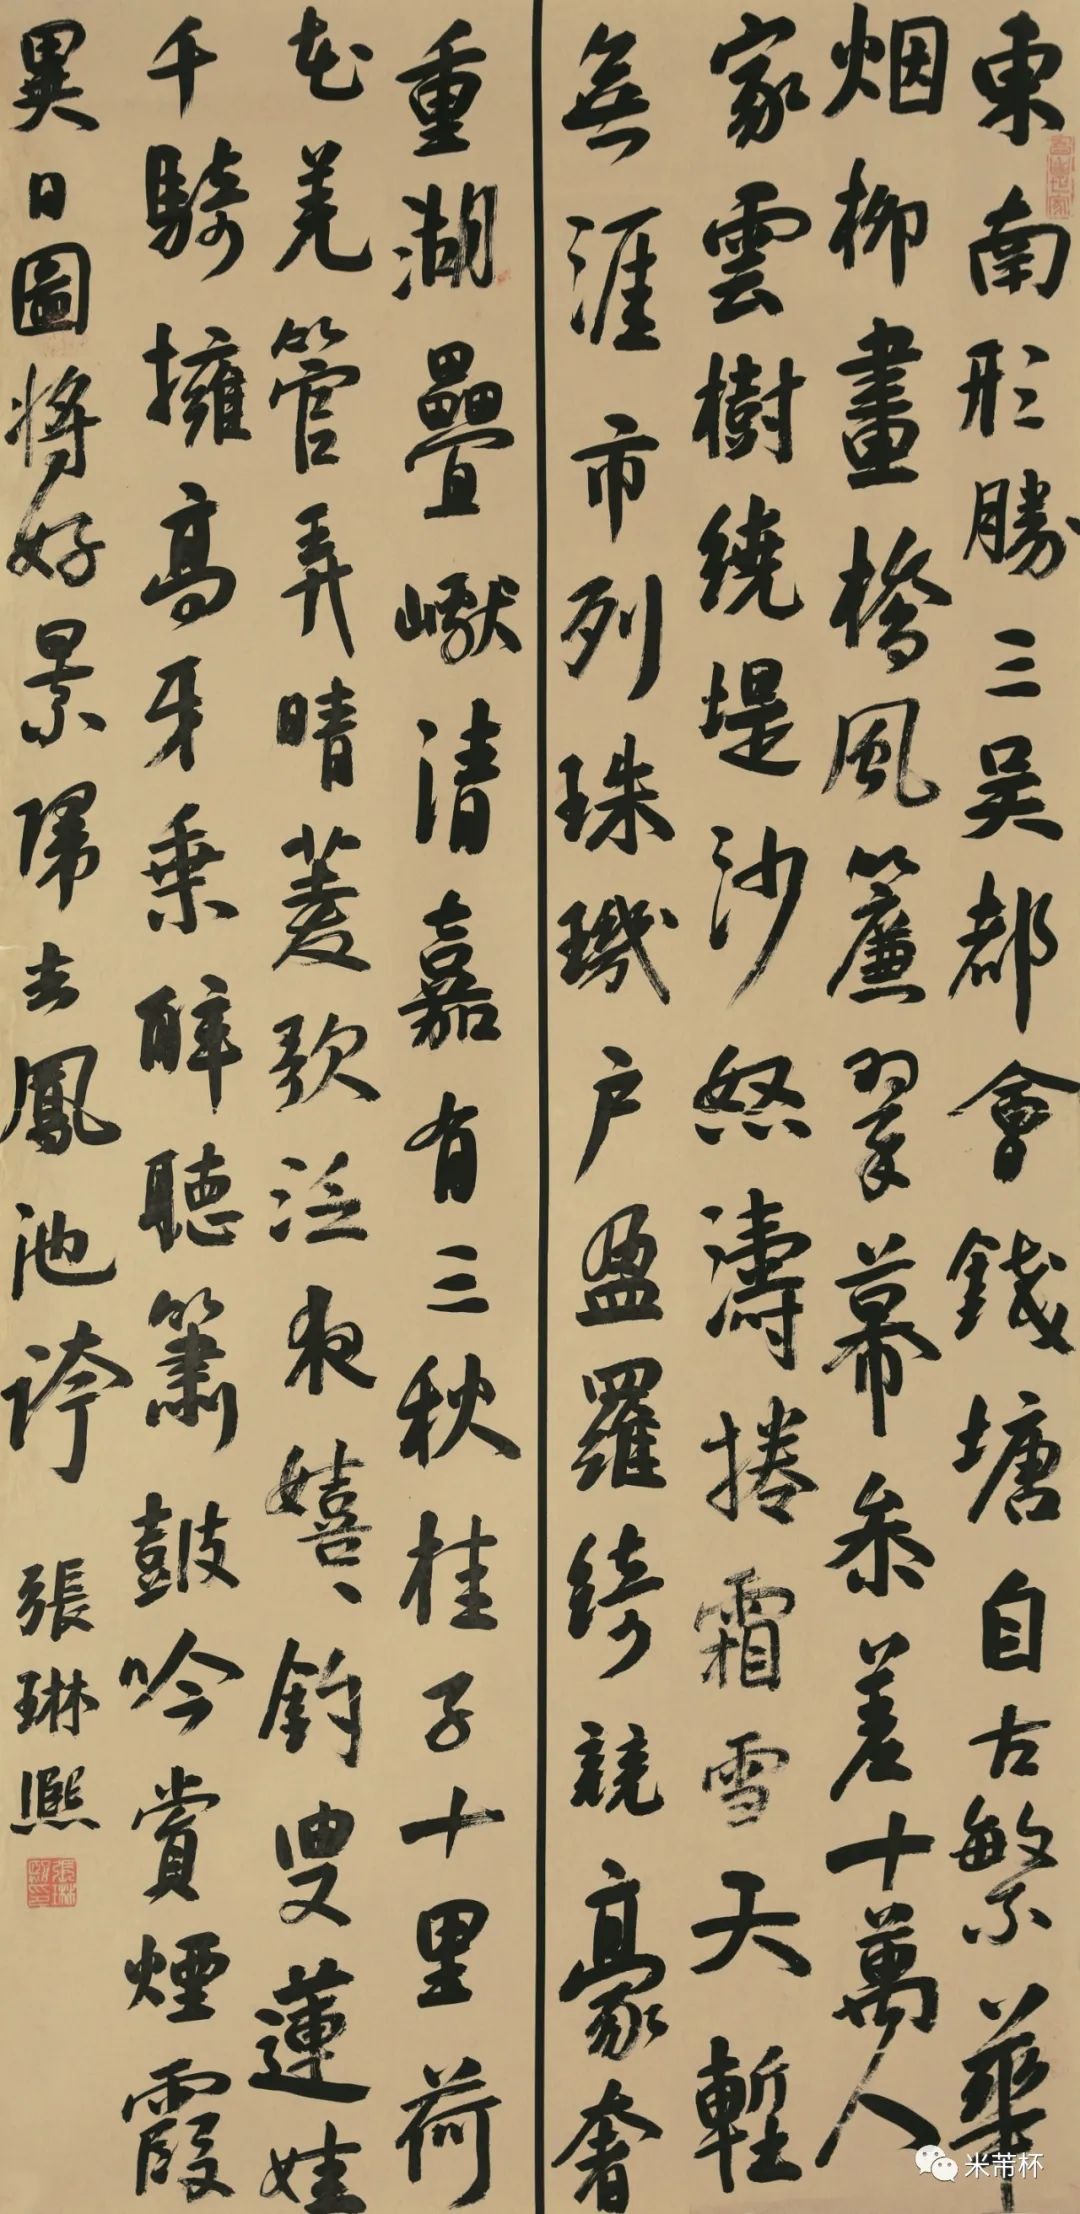 東南形勝三吳都會錢塘自古繁華
烟柳畫橋風簾翠幕參差十萬人
家雲樹繞堤沙怒濤捲霜雪天塹
無涯市列珠璣戶盈羅綺競豪奢
重湖疊巘清嘉有三秋桂子十里荷
花羌管弄晴菱歌泛夜嬉、釣叟蓮娃
千騎擁高牙乘醉聽簫鼓吟賞煙霞
異日圖將好景歸去鳳池誇 張琳熙
張琳熙印
米芾杯